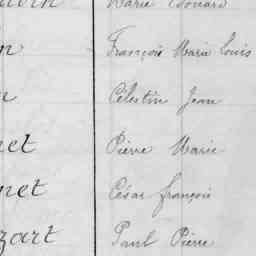 Marie Edouard
n François Marie Louis
n Célestin Jean
net Pierre Marie
net César françois
zart Paul Pierre